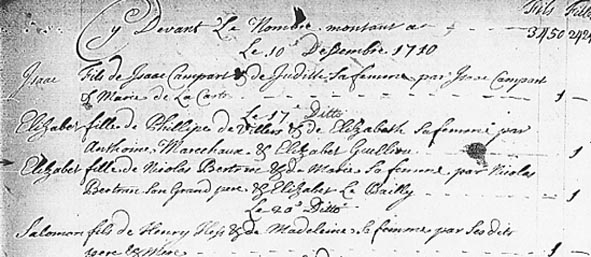 Fils Filles
Cy Devant Le Nombre montant a 3450 2424
Le 10e Dessembre 1710
Isaac Fils de Isaac Campart & de Judith Sa femme par Isaac Campart
& Marie de La Carte 1 -
Le 17e Ditto
Elizabet fille de Phillipe de Villers & de Elizabeth Sa femme par
Anthoine Marechaux & Elizabet Guillieu - 1
Elizabet fille de Nicolas Bertrine & de Marie Sa femme par Nicolas
Bertrine Son Grand pere & Elizabet Le Bailly - 1
Le 20e Ditto
Salomon fils de Henry & de Madeleine Sa femme par Ses dits
pere & Mere 1 -